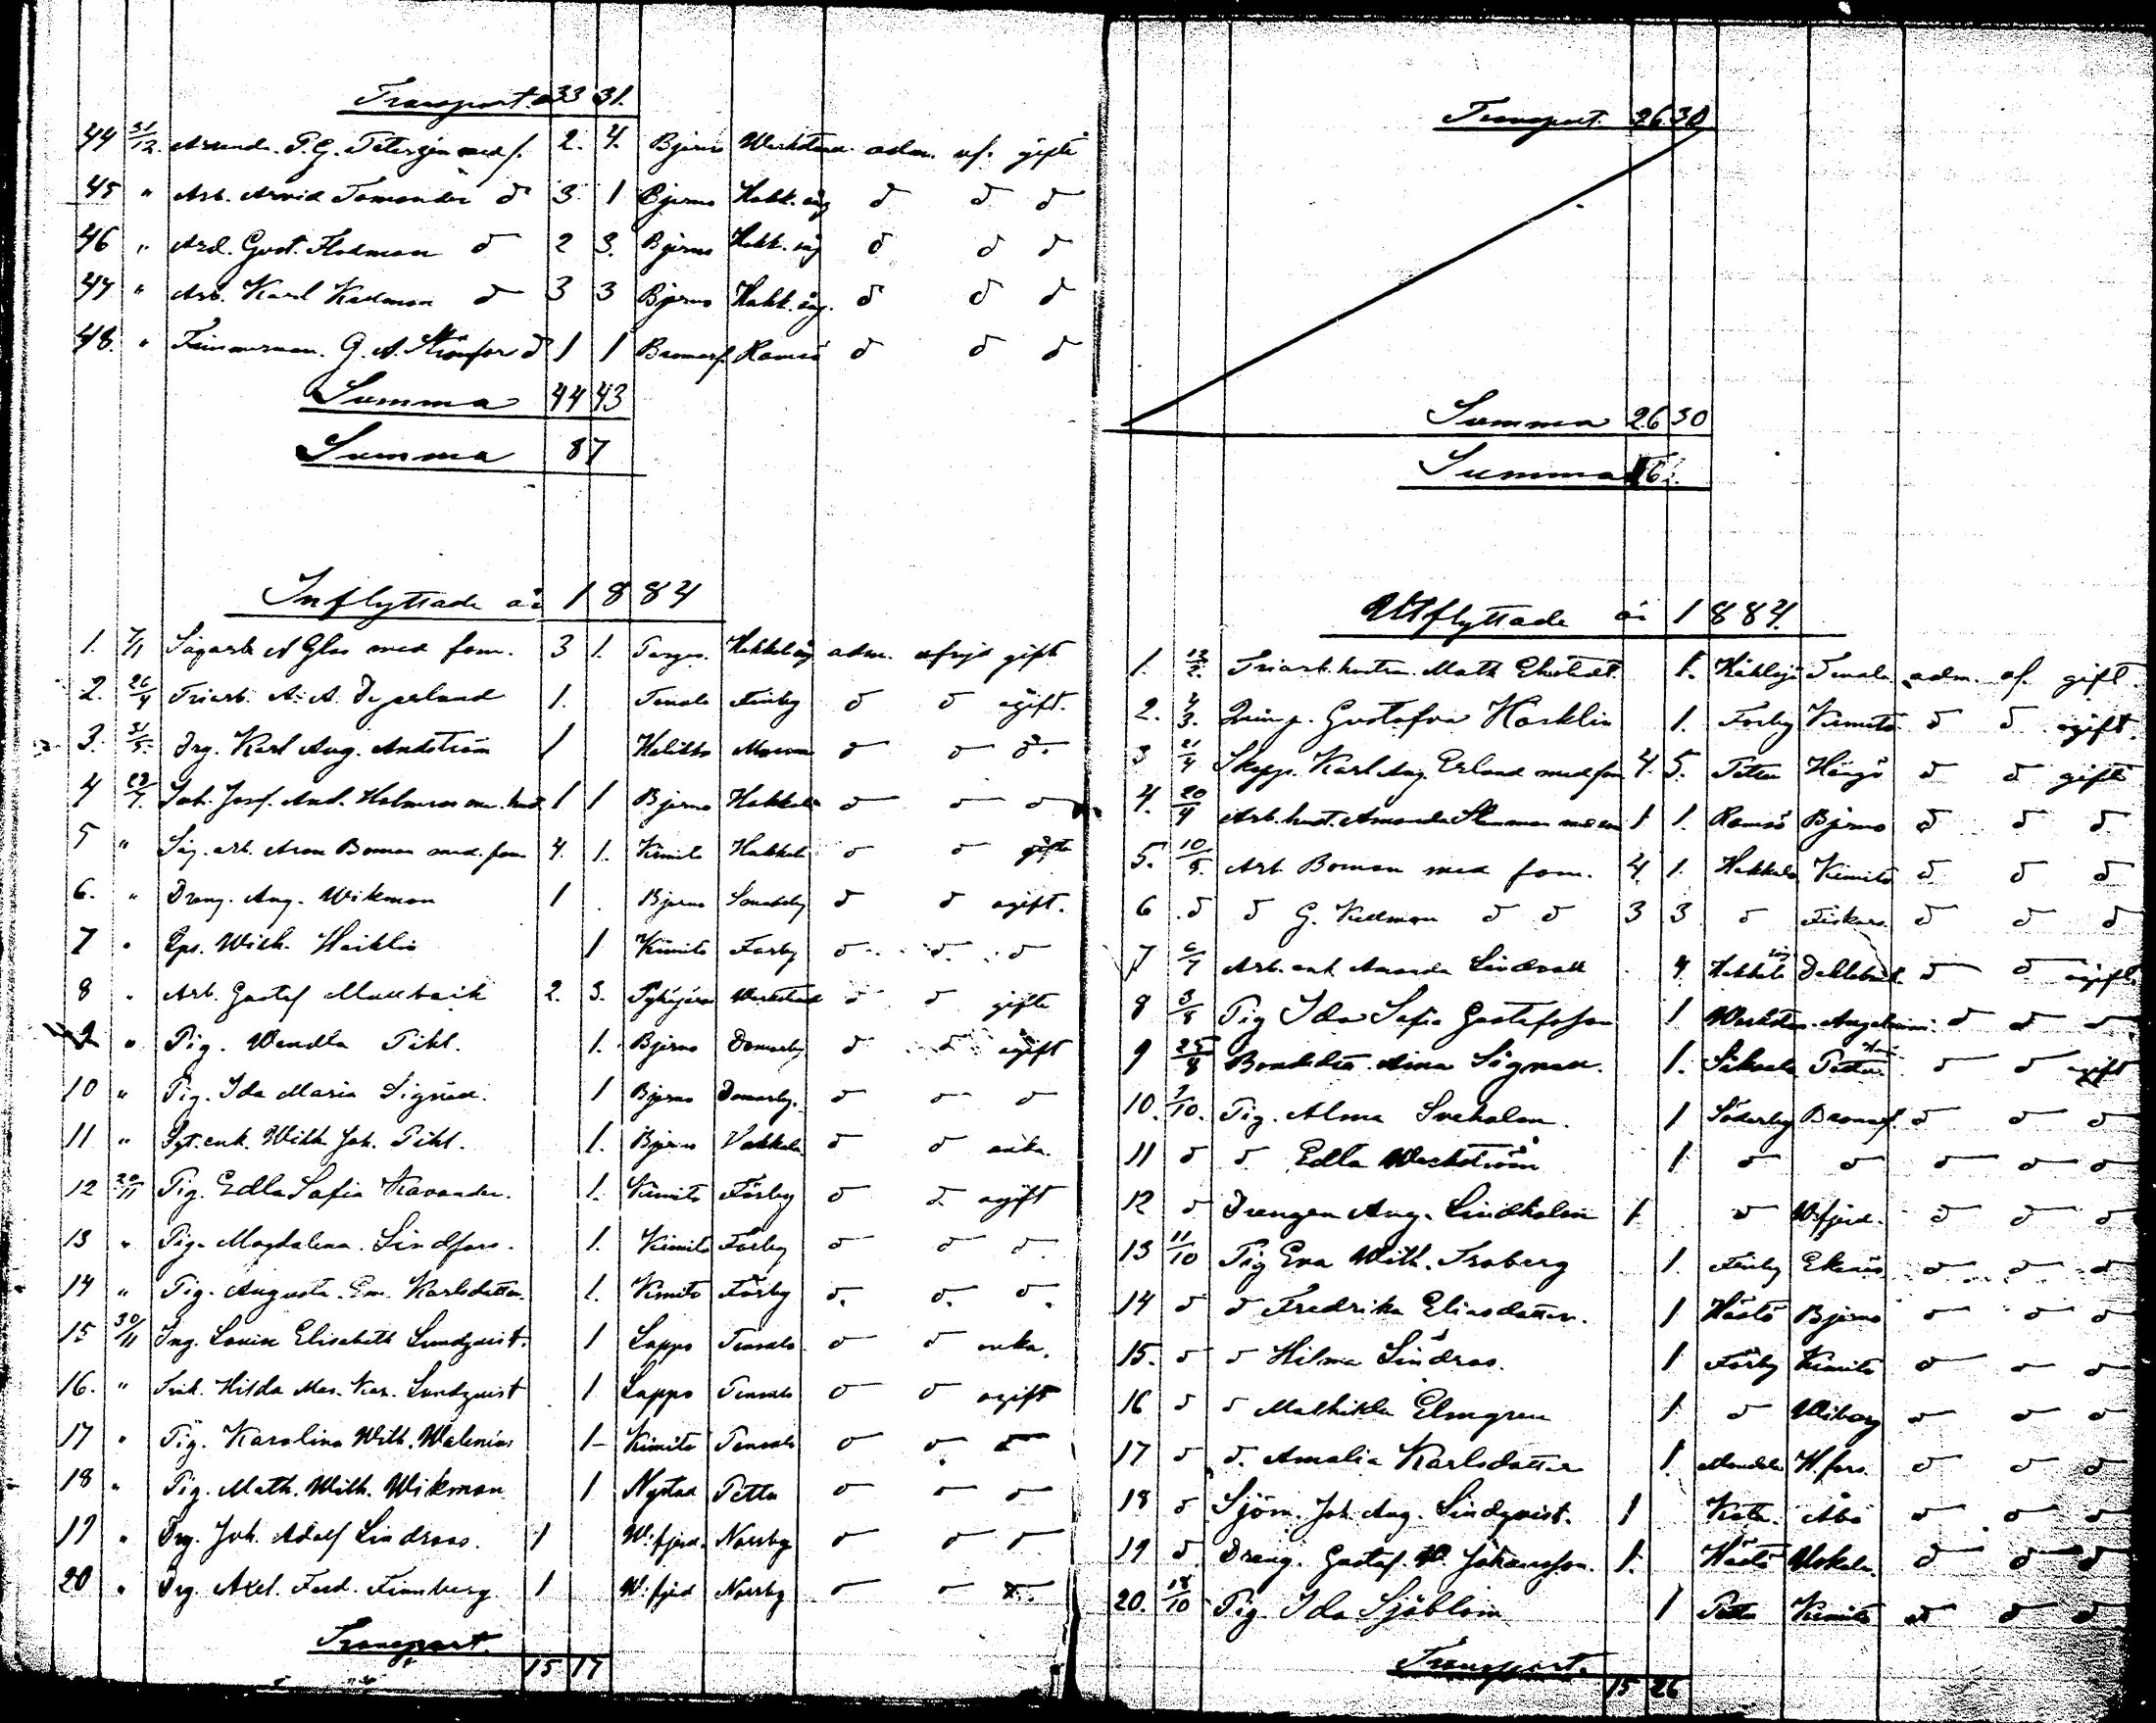 Transport. 33 31.
44 31/12. Arrend. P. G. Petersén med f. 2. 4. Bjerno Werkstran adm. af. gifta
45 " Arb. Arvid Tamander d 3 1 Bjerno Hakk. såg d d d
46 " Arb. Gust. Flodman d 2 3. Bjerno Hakk. såg d d d
47 " Arb. Karl Kullman d 3 3 Bjerno Hakk. såg. d d d
48. " Timmerman. G. A. d 1 1 Bromarf Ramsö d d d
Summa 44 43
Summa 87
Inflyttade år 1884
1. 7/1 Sågarb A Glas med fam. 3 1. Hakkala såg adm. afvgd gift
2. 26/4 Friarb. A. A. Dyerlund 1. Tenala Finby d d ogift.
3. 31/5. Drg. Karl Aug. Andström 1 Halikko d d d.
4 Joh. Josf. And. Holmroos m. hust 1 1 Bjerno Hakkala d d d
5 " Såg. arb. Aron Boman med. fam 4. 1. Kimito Hakkala d d gifta
6. " Dreng. Aug. Wikman 1 Bjerno d d ogift.
7 " Wilh. Hörklin 1 Kimito Förby d d d
8 " Arb. Gustaf 2. 3. Werkstad d d gifta
9 " Pig. Wendla Pihl. 1. Bjerno Domarby d d ogift
10 " Pig. Ida Maria Signell. 1 Bjerno Domarby. d d d
11 " enk. Wilh. Joh. Pihl. 1. Bjerno d d enka.
12 20/11 Pig. Edla Sofia Kavander. 1. Kimito Förby d d ogift
13 " Pig. Magdalena Lindfors. 1. Kimito Förby d d d.
14 " Pig. Augusta Em. Karlsdotter. 1. Kimito Förby d. d. d.
15 30/11 Lovisa Elisabeth Lundqvist. 1 Lappo Tenala d d enka.
16. " Hilda Mar. Kar. Lundqvist 1 Lappo Tenala d d ogift
17 " Pig. Karolina Wilh. Walenius 1 Kimito Tenala d d d
18 " Pig. Math. Wilh. Wikman 1 Nystad Petta d d d
19 " Drg. Joh. Adolf Lindroos. 1 W:fjärd. Norrby d d d
20 " Drg. Axel. Ferd. Finnberg 1 W:fjärd Norrby d d d.
Transport. 15 17
Transport. 26 30
Summa 26 30
Summa 56.
Utflyttade år 1884.
1. 13/2. Friarb. hustru. Math Ekstedt. 1. Tenala adm. af. gift.
2. 4/3. Gustafva Horklin 1. Förby Kimito d d ogift.
3 21/4 Skepp. Karl Aug. Erlund med fam 4. 5. Petta Hangö d d gifta
4. 20/4 Arb. hust. Amanda 1 1. Ramsö Bjerno d d d
5. 10/5. Arb. Boman med fam. 4. 1. Hakkala Kimito d d d
6 d d G. Kullman d d 3 3 d Fiskars d d d
7 6/7 Arb. enk Amanda Lindvall 4. Hakkala såg Dahlsbruk d d ogift
8 3/8 Pig Ida Sofia Gustafsson 1 Werkstran. Angelniemi. d d d
9 25/8 Bondedtr. Aina Signell. 1. d d ogift
10. 7/10. Pig. Alma Sveholm. 1 Söderby Bromarf d d d
11 d d. Edla Werkström 1 d d d d d
12 d Drengen Aug. Lindholm 1 d W:fjärd. d d d
13 11/10 Pig Eva Wilh. Froberg 1 Finby Ekenäs d d d
14 d d Fredrika Eliasdotter. 1 Hästö Bjerno d d d
15. d d Hilma Lindroos. 1 Förby Kimito d d d
16 d d Mathilda Elmgren 1 d Wiborg d d d
17 d d. Amalia Karlsdotter 1. H:fors. d d d
18 d Sjöm. Joh. Aug. Lindqvist. 1 Åbo d d d
19 d Dreng. Gustaf W. Johansson. 1. Hästö Uskela. d d d
20. 18/10 Pig. Ida Sjöblom 1 Petta Kimito d d d
Transport. 15 26